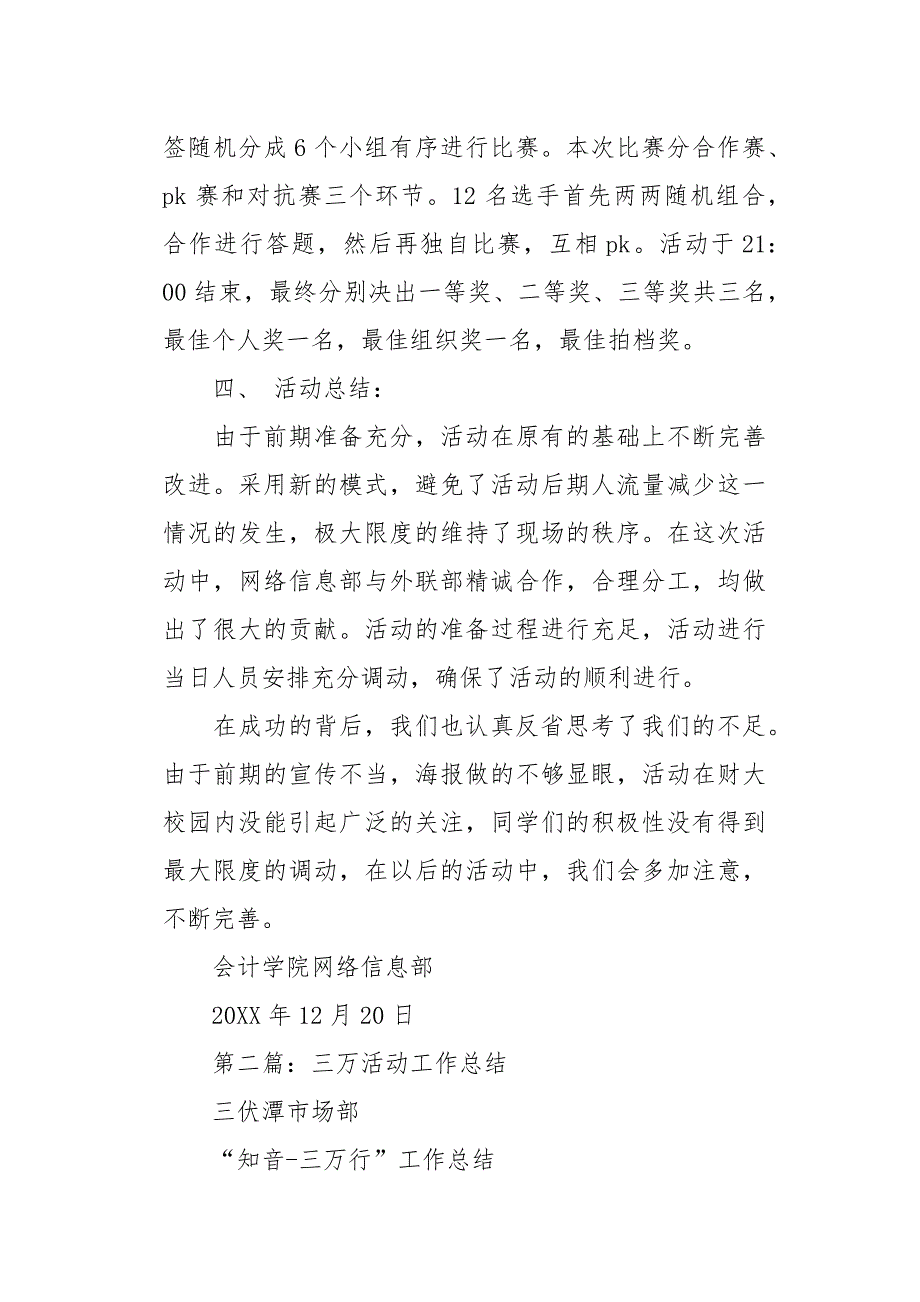 签随机分成 6 个小组有序进行比赛。本次比赛分合作赛、
pk 赛和对抗赛三个环节。12 名选手首先两两随机组合，
合作进行答题，然后再独自比赛，互相 pk。活动于 21：
00 结束，最终分别决出一等奖、二等奖、三等奖共三名，
最佳个人奖一名，最佳组织奖一名，最佳拍档奖。
四、 活动总结：
由于前期准备充分，活动在原有的基础上不断完善
改进。采用新的模式，避免了活动后期人流量减少这一
情况的发生，极大限度的维持了现场的秩序。在这次活
动中，网络信息部与外联部精诚合作，合理分工，均做
出了很大的贡献。活动的准备过程进行充足，活动进行
当日人员安排充分调动，确保了活动的顺利进行。
在成功的背后，我们也认真反省思考了我们的不足。
由于前期的宣传不当，海报做的不够显眼，活动在财大
校园内没能引起广泛的关注，同学们的积极性没有得到
最大限度的调动，在以后的活动中，我们会多加注意，
不断完善。
会计学院网络信息部
20XX 年 12 月 20 日
第二篇：三万活动工作总结
三伏潭市场部
“知音-三万行”工作总结